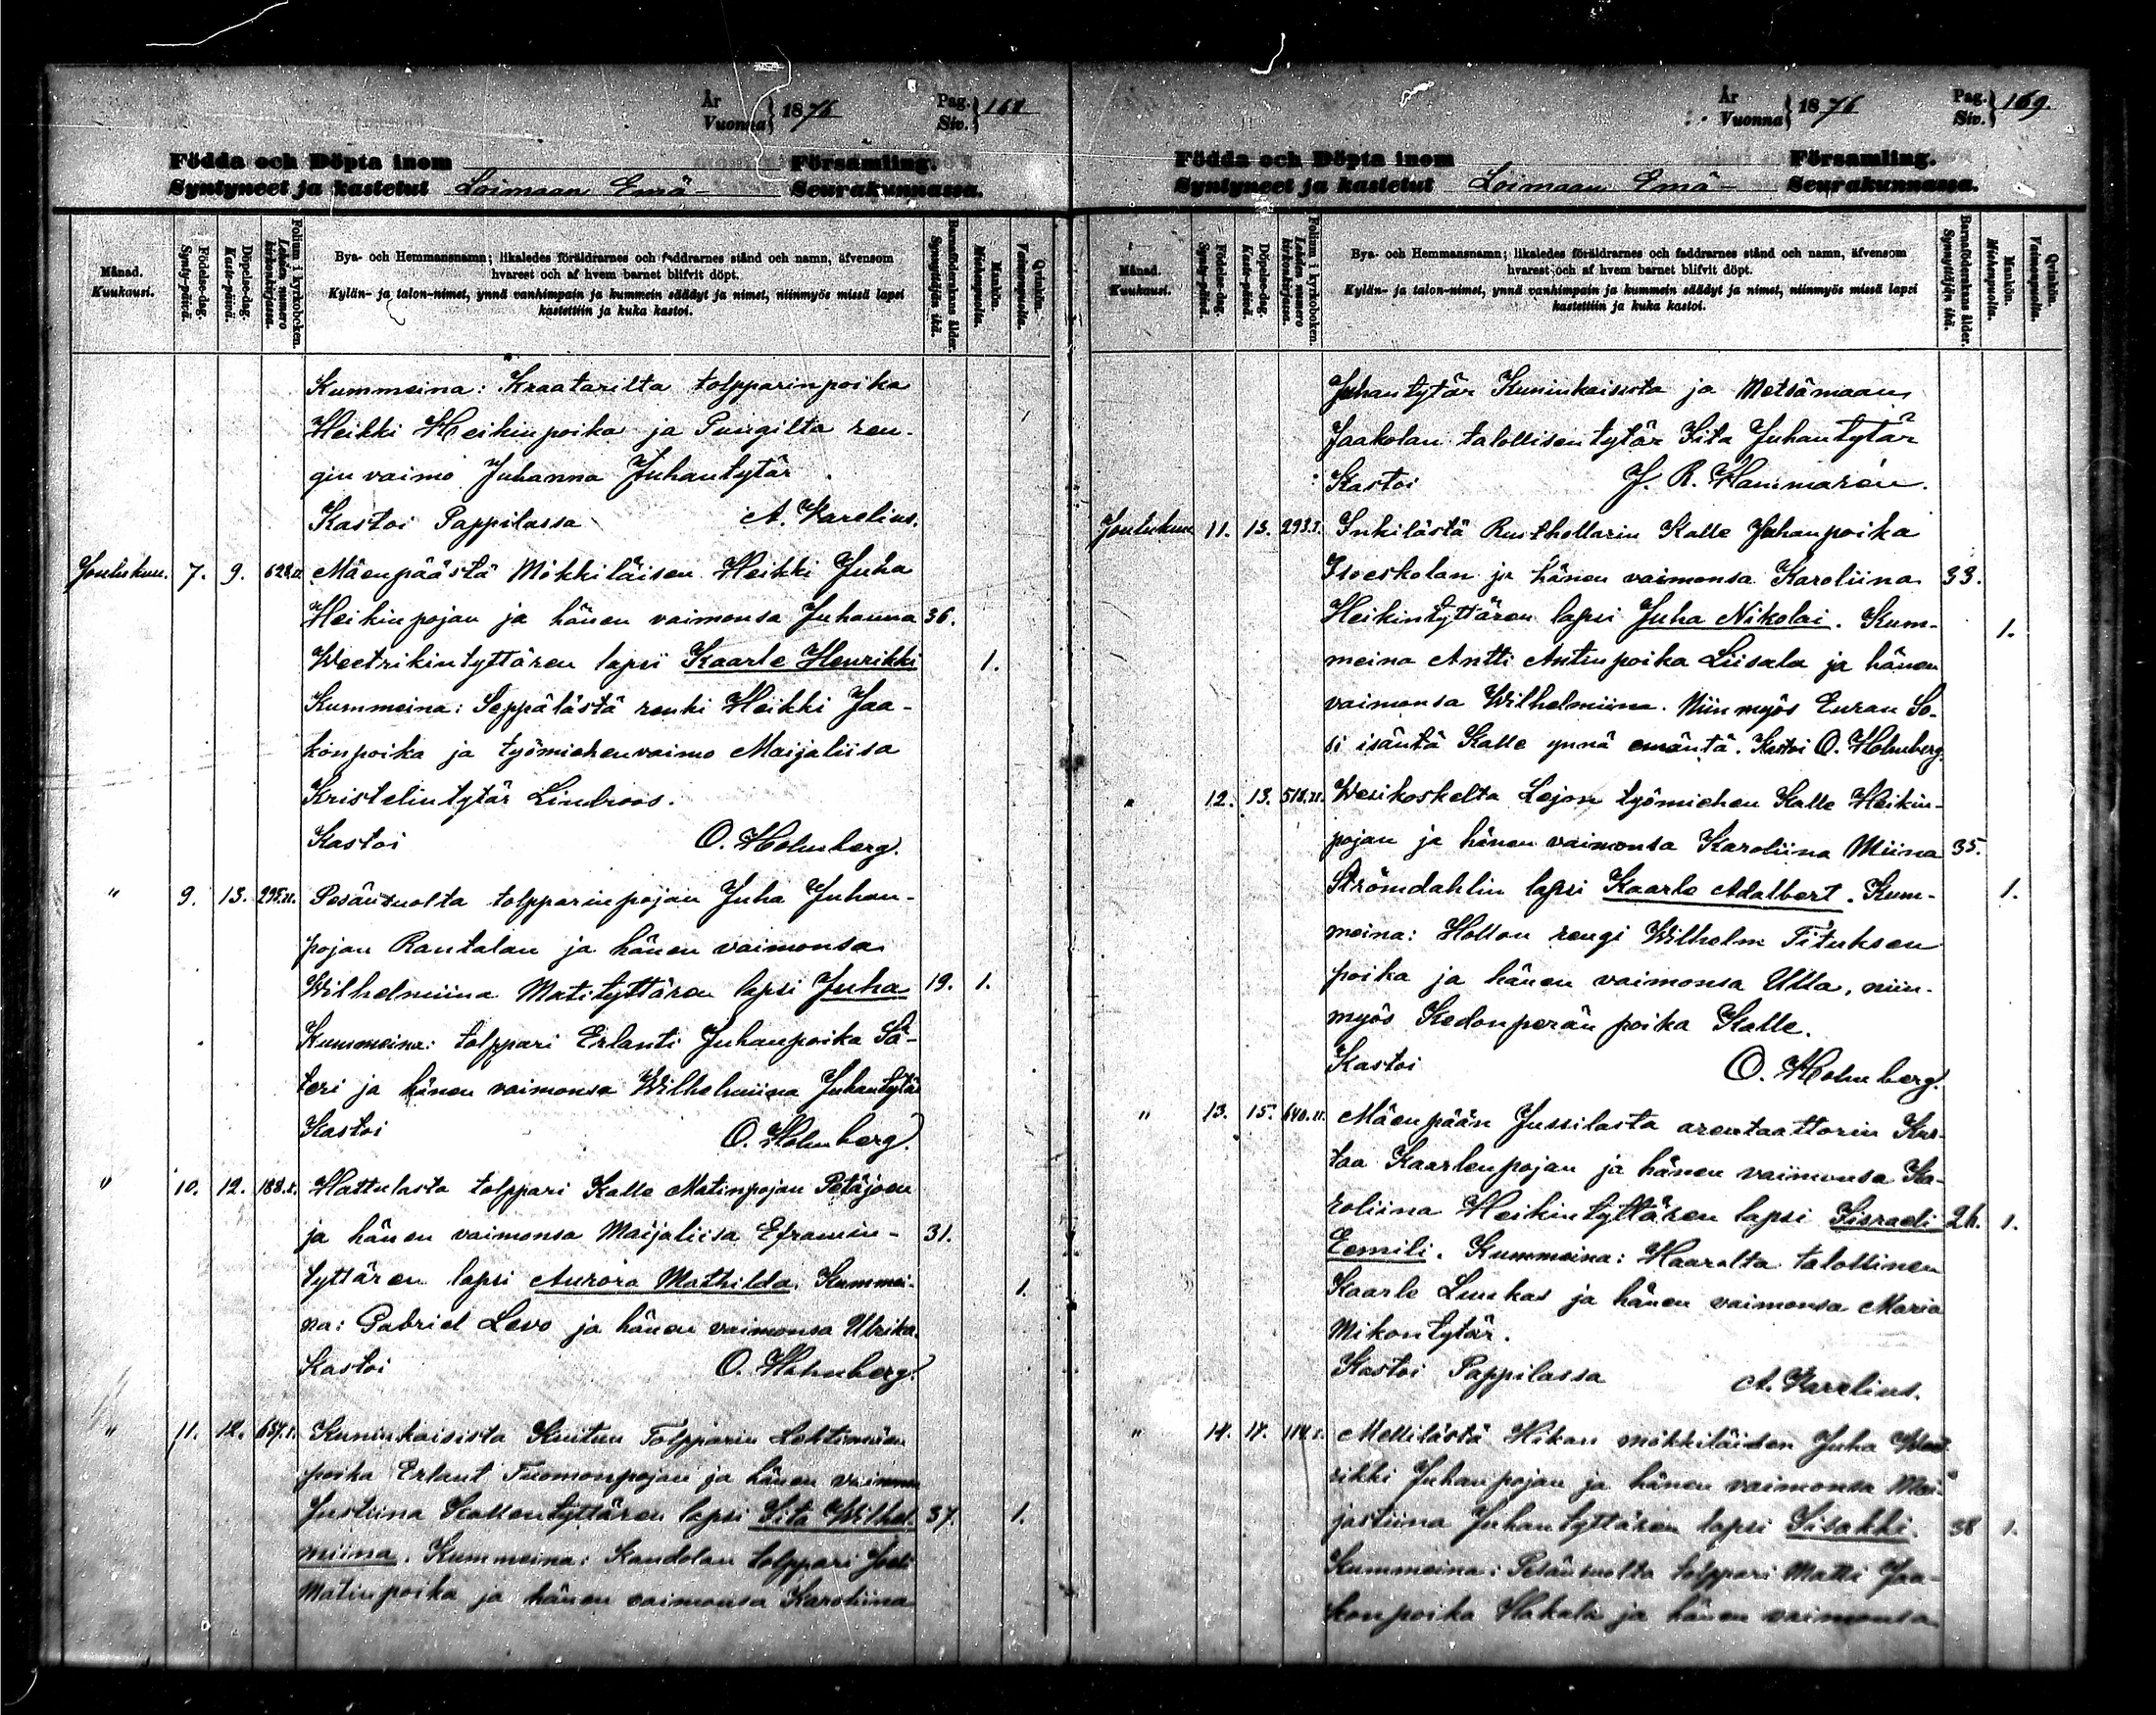 År
Vuonna } 1876
Pag.
Siv. } 168
Födda och Döpta inom Församling.
Syntyneet ja kastetut Loimaan Emä- Seurakunnassa.
Månad.
Kuukausi.
Födelse-dag.
Synty-päivä.
Döpelse-dag.
Kaste-päivä.
Folium i kyrkoboken.
Lehden numero kirkonkirjassa.
Bya- och Hemmansnamn; likaledes föräldrarnes och faddrarnes stånd och namn, äfvensom
hvarest och af hvem barnet blifvit döpt.
Kylän- ja talon-nimet, ynnä vanhimpain ja kummein säädyt ja nimet, niinmyös missä lapsi
kastettiin ja kuka kastoi.
Barnaföderskans ålder.
Synnyttäjän ikä.
Mankön.
Miehenpuolta.
Qvinkön.
Vaimonpuolta.
Kummeina: Kraatarilta tolpparinpoika
Heikki Heikinpoika ja Pungilta ren-
gin vaimo Juhanna Juhantytär
Kastoi Pappilassa A. Karelius.
Joulukuu. 7. 9. 628.II. Mäenpäästä Mökkiläisen Heikki Juha
Heikinpojan ja hänen vaimonsa Juhanna 36.
Weetrikintyttären lapsi Kaarle Henrikki 1.
Kummeina: Seppälästä renki Heikki Jaa-
konpoika ja työmiehenvaimo Maijaliisa
Kristelintytär Lindroos.
Kastoi O. Holmberg.
" 9. 13. 295.II. Pesänsuolta tolpparinpojan Juha Juhan-
pojan Rantalan ja hänen vaimonsa
Wilhelmiina Matityttären lapsi Juha 19. 1.
Kummeina: tolppari Erlanti Juhanpoika Sä-
teri ja hänen vaimonsa Wilhelmiina Juhantytär
Kastoi O. Holmberg.
" 10. 12. 188.I. Hattulasta tolppari Kalle Matinpojan Petäjoen
ja hänen vaimonsa Maijaliisa Eframin- 31.
tyttären lapsi Aurora Mathilda. Kummei- 1.
na: Gabriel Levo ja hänen vaimonsa Ulrika.
Kastoi O. Holmberg.
" 11. 12. 657.I. Kuninkaisista Kuitun Tolpparin Lehtimäen
poika Erlant Tuomonpojan ja hänen vaimon
Justiina Kallentyttären lapsi Iita Wilhel- 37. 1.
miina. Kummeina: Kandolan tolppari Joeli
Matinpoika ja hänen vaimonsa Karoliina
År
Vuonna } 1876
Pag.
Siv. } 169.
Födda och Döpta inom Församling.
Syntyneet ja kastetut Loimaan Emä- Seurakunnassa.
Månad.
Kuukausi.
Födelse-dag.
Synty-päivä.
Döpelse-dag.
Kaste-päivä.
Folium i kyrkoboken.
Lehden numero kirkonkirjassa.
Bya- och Hemmansnamn; likaledes föräldrarnes och faddrarnes stånd och namn, äfvensom
hvarest och af hvem barnet blifvit döpt.
Kylän- ja talon-nimet, ynnä vanhimpain ja kummein säädyt ja nimet, niinmyös missä lapsi
kastettiin ja kuka kastoi.
Barnaföderskans ålder.
Synnyttäjän ikä.
Mankön.
Miehenpuolta.
Qvinkön.
Vaimonpuolta.
Juhantytär Kuninkaisista ja Metsämaan
Jaakolan talollisentytär Iita Juhantytär
Kastoi J. R. Hammarén.
Joulukuu 11. 13. 293.I. Inkilästä Rusthollarin Kalle Juhanpoika
Isoeskolan ja hänen vaimonsa Karoliina 33.
Heikintyttären lapsi Juha Nikolai. Kum- 1.
meina Antti Antinpoika Liisala ja hänen
vaimonsa Wilhelmiina. Niinmyös Euran So-
si isäntä Kalle ynnä emäntä. Kastoi O. Holmberg.
" 12. 13. 518.II. Wesikoskelta Lejon työmiehen Kalle Heikin-
pojan ja hänen vaimonsa Karoliina Miina 35.
Strömdahlin lapsi Kaarle Adalbert. Kum- 1.
meina: Hollon rengi Wilhelm Tituksen
poika ja hänen vaimonsa Ulla, niin-
myös Kedonperän poika Kalle.
Kastoi O. Holmberg.
" 13. 15. 640.II. Mäenpään Jussilasta arentaattorin Kus-
taa Kaarlenpojan ja hänen vaimonsa Ka-
roliina Heikintyttären lapsi Iisraeli 26. 1.
Eemili. Kummeina: Haaralta talollinen
Kaarle Luukas ja hänen vaimonsa Maria
Mikontytär.
Kastoi Pappilassa A. Karelius.
" 14. 17. 114.I. Mellilästä Hikan mökkiläisen Juha
rikki Juhanpojan ja hänen vaimonsa Mai-
jastiina Juhantyttären lapsi Iisakki. 38 1.
Kummeina: Pesänsuolta tolppari Matti Jaa-
konpoika Hakala ja hänen vaimonsa